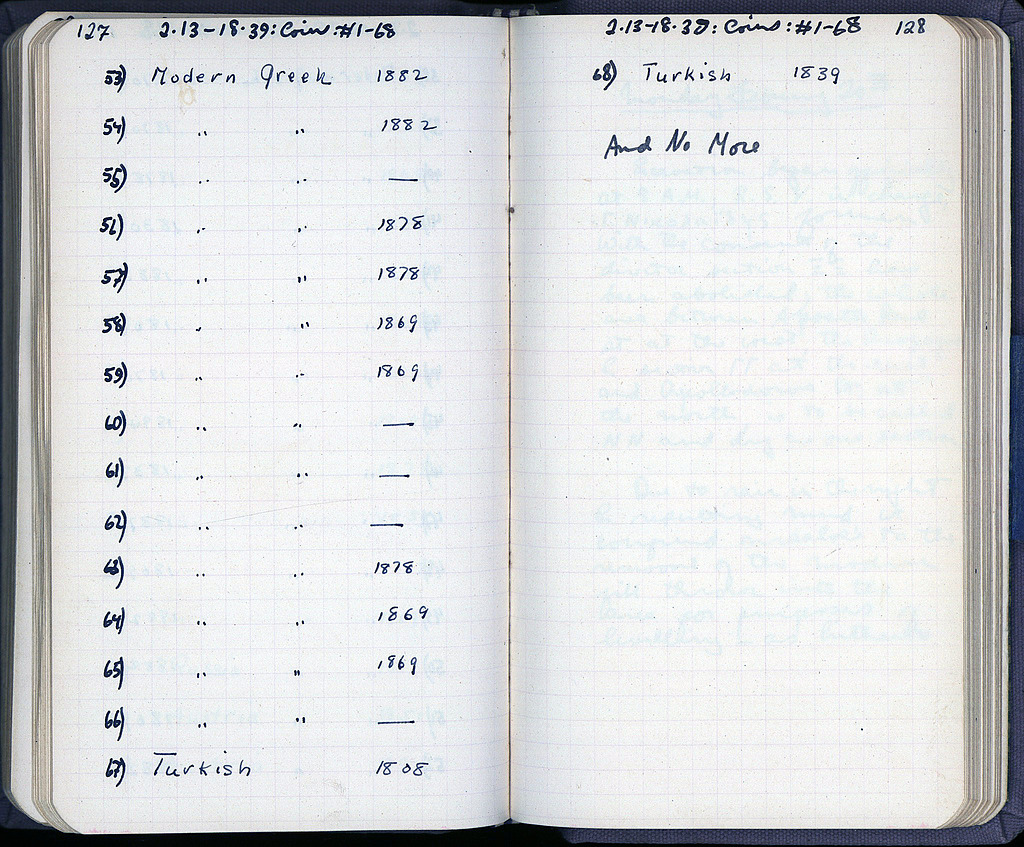 127 2.13-18.39: Coins: #1-68
53) Modern Greek 1882
54) " " 1882
55) " " —
56) " " 1878
57) " " 1878
58) " " 1869
59) " " 1869
60) " " —
61) " " —
62) " " —
63) " " 1878
64) " " 1869
65) " " 1869
66) " " —
67) Turkish 1808
2.13-18.39: Coins: #1-68 128
68) Turkish 1839
And No More